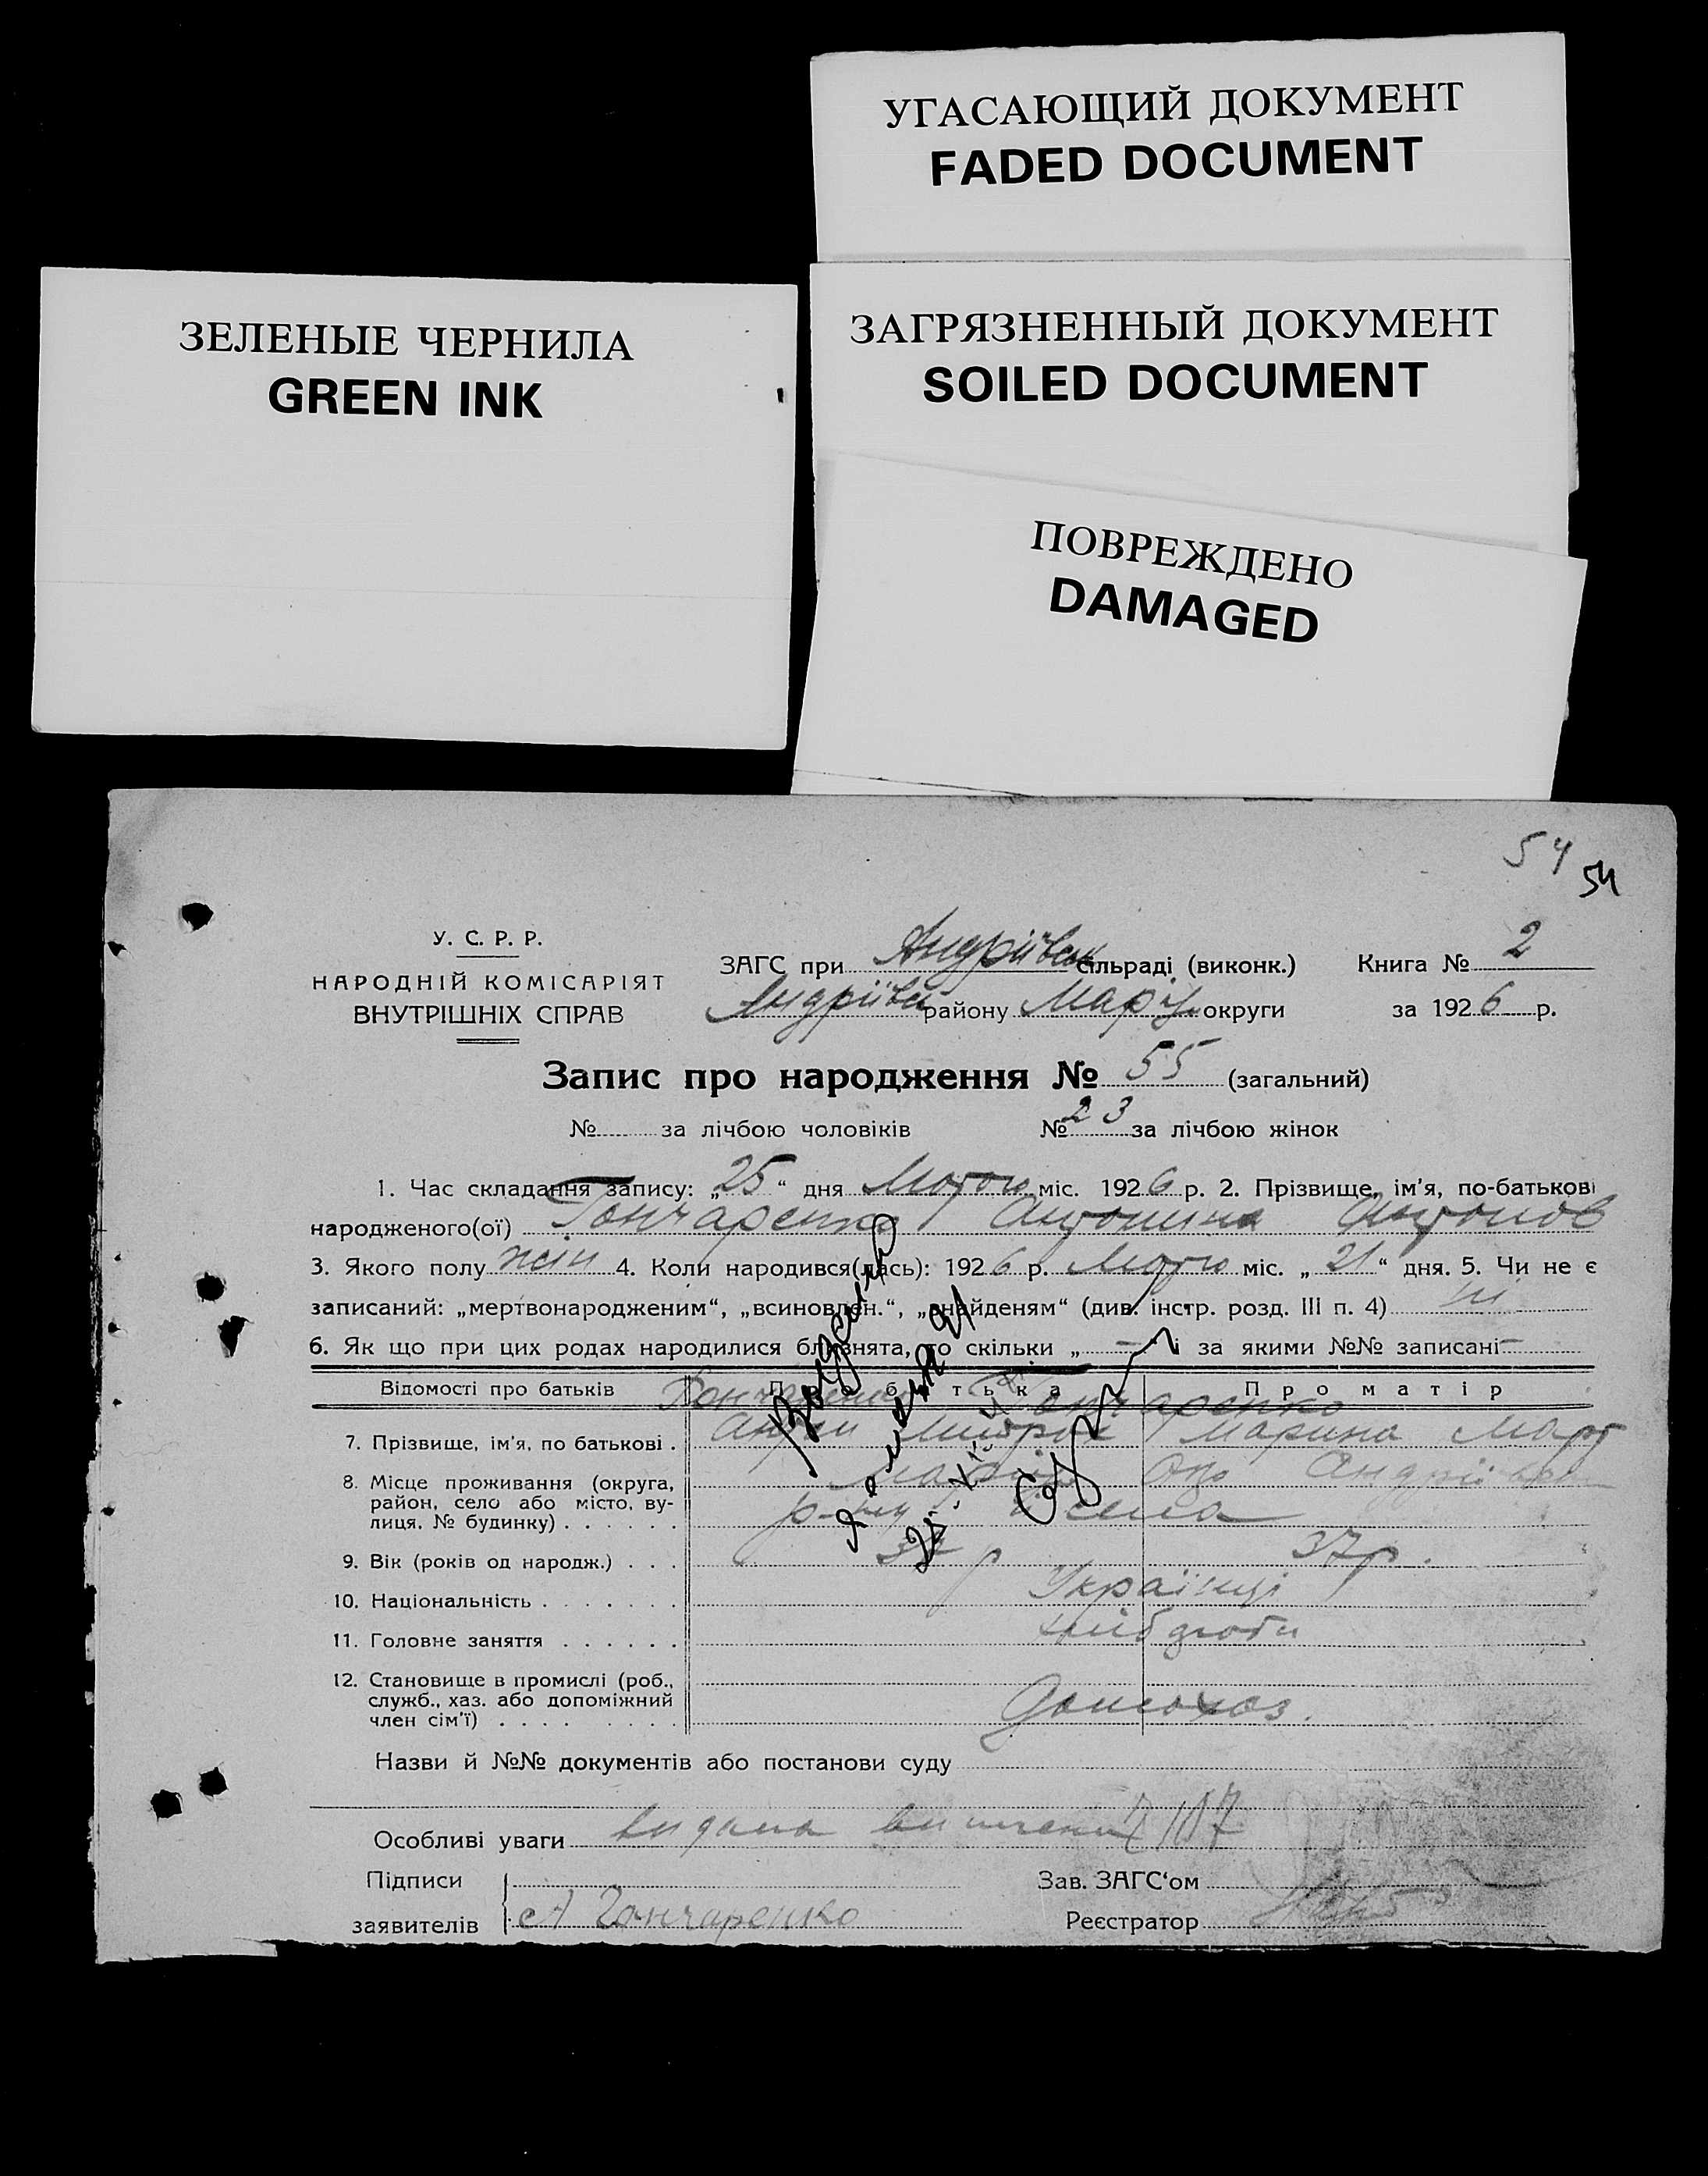 УГАСАЮЩИЙ ДОКУМЕНТ
FADED DOCUMENT
ЗЕЛЕНЫЕ ЧЕРНИЛА
GREEN INK
ЗАГРЯЗНЕННЫЙ ДОКУМЕНТ
SOILED DOCUMENT
ПОВРЕЖДЕНО
DAMAGED
54
54
У. С. Р. Р.
НАРОДНІЙ КОМІСАРІЯТ
ВНУТРІШНІХ СПРАВ
ЗАГС при Андріївськ сільраді (виконк.)
Андріївськ району Маріуп округи
Книга № 2
за 1926 р.
Запис про народження № 55 (загальний)
№ за лічбою чоловіків № 23 за лічбою жінок
1. Час складання запису: „25“ дня Лютого міс. 1926 р. 2. Прізвище, ім'я, по-батькові
народженого(ої) Гончаренко Антонина Антонов
3. Якого полу жін 4. Коли народився(лась): 1926 р. Лютого міс. „21“ дня. 5. Чи не є
записаний: „мертвонародженим“, „всиновлен.“, „знайденям“ (див. інстр. розд. III п. 4) ні
6. Як що при цих родах народилися близнята, то скільки „ – “ і за якими №№ записані –
Відомості про батьків Про батька Про матір
Гончаренко Гончаренко
7. Прізвище, ім'я, по батькові . Антон Марина Март
8. Місце проживання (округа,
район, село або місто, вулиця, № будинку) . . . . . . Маріуп Окр Андріївськ
р-ну села
9. Вік (років од народж.) . . . р 37 р.
10. Національність . . . . . . . Українці
11. Головне заняття . . . . . . хліб
12. Становище в промислі (роб.,
служб., хаз. або допоміжний
член сім'ї) . . . . . . . . Домохоз.
Назви й №№ документів або постанови суду
Особливі уваги видана 107
Підписи
заявителів А Гончаренко
Зав. ЗАГС'ом
Реєстратор